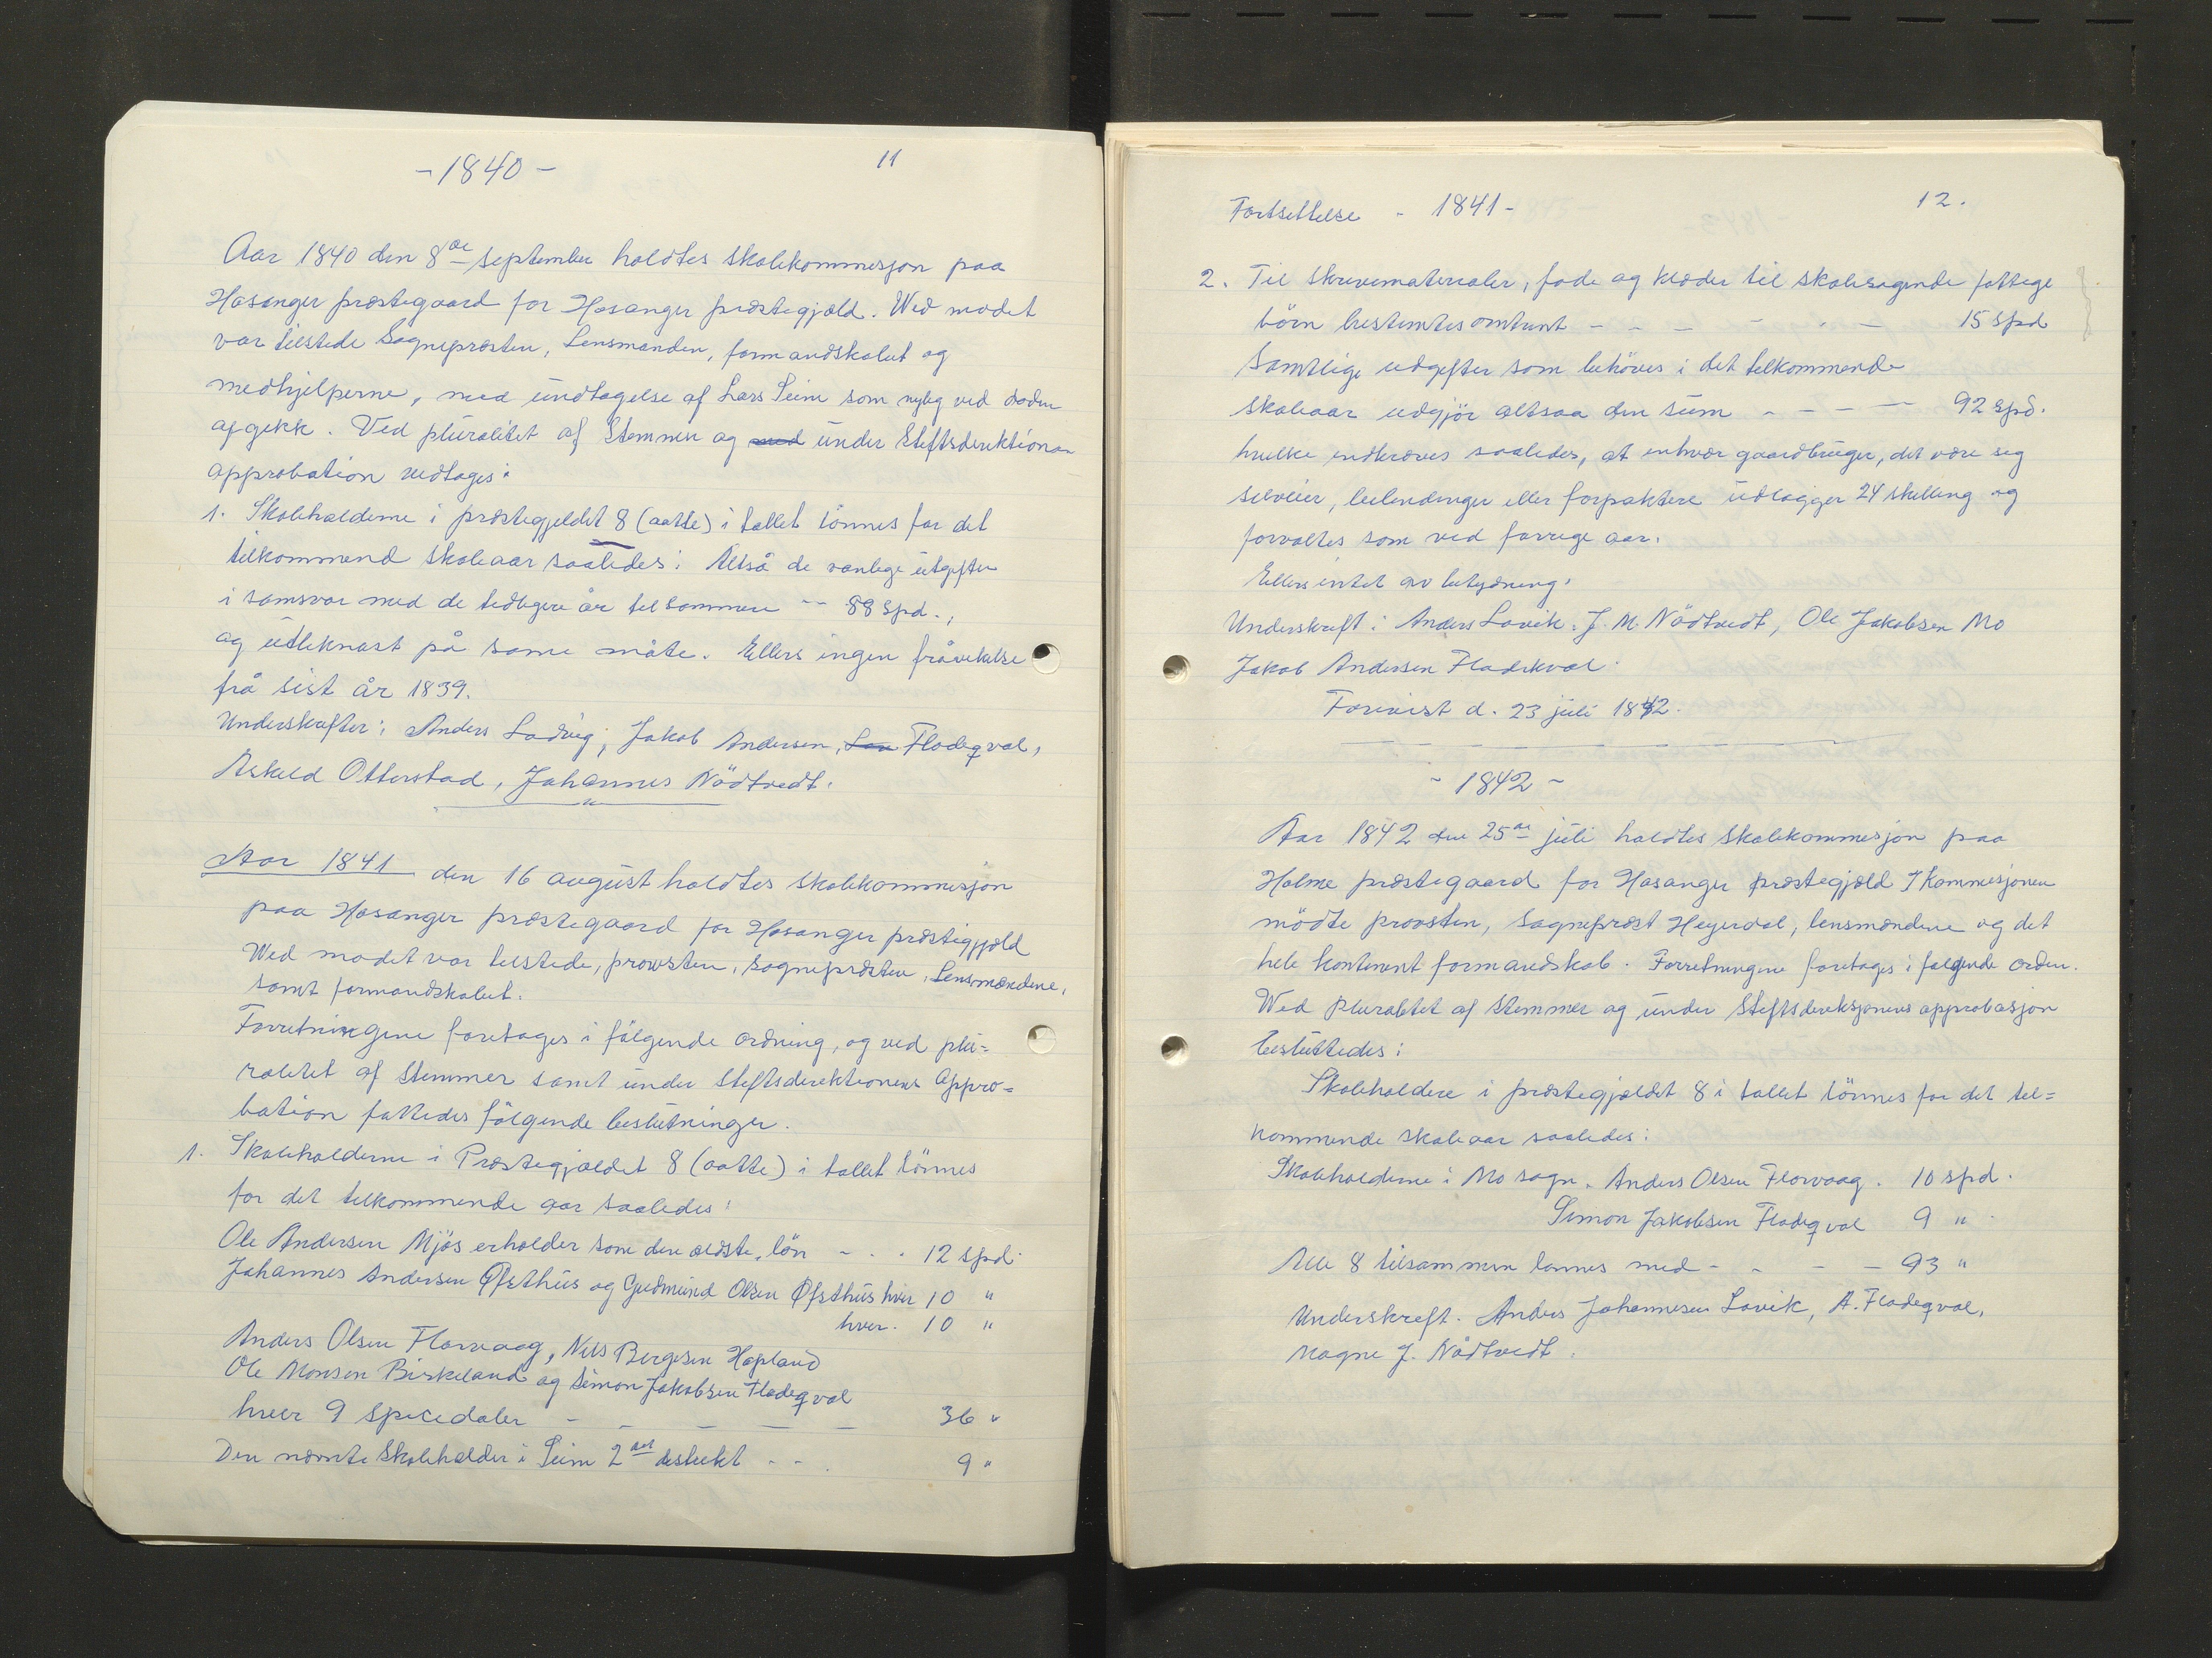 - 1840 -
11
Aar 1840 den 8de september holdtes skolekommisjon paa
Hosanger præstegaard for Hosanger præstegjæld. Wed modet
var tilstede Sognepræsten, Lensmanden, formandskabet og
medhjelperne, med undtagelse af Lars Seim som nylig ved døden
afgikk. Ved pluralitet af Stemmer og med under Stiftsdirektionen
approbation vedtoges:
1. Skoleholderne i præstegjeldet 8 (aatte) i tallet lönnes for det
tilkommend skoleaar saaledes: Altså de vanlege utgifter
i samsvar med de tidligere år tilsammen -- 88 Spd.,
og utliknast på same måte. Ellers ingen fråvikelse
frå sist år 1839.
Underskrifter: Anders Ladvig, Jakob Andersen, Lau Fladeqval,
Askeld Otterstad, Johannes Nödtvedt.
Aar 1841 den 16 august holdtes skolekommisjon
paa Hosanger præstegaard for Hosanger præstigjæld
Wed modet var tilstede, provsten, sognepræsten, Lensmændene,
samt formandskabet.
Forretningene foretages i fölgende ordning, og ved plu=
ralitet af Stemmer samt under Stiftsdirektionens Appro=
bation fattedes fölgende beslutninger.
1. Skoleholderne i Præstegjældet 8 (aatte) i tallet lönnes
for det tilkommende aar saaledes:
Ole Andersen Mjøs erholder som den ældste, lön - - . 12 spd.
Johannes Andersen Øfsthus og Gudmund Olsen Øfsthus hver 10 "
hver. 10 "
Anders Olsen Florvaag, Nils Bergesen Hopland
Ole Monsen Birkeland og Simon Jakobsen Fladeqval
hver 9 specedaler - - - - - 36 "
Den nævnte Skoleholder i Seim 2det distrikt - - . 9 "
Fortsettelse - 1841 -
12.
2. Til skrivematerialer, føde og klæder til skolesøgende fattige
börn bestemtes omtrent - - - - - - 15 spd
Samtlige udgifter som behöves i det tilkommende
skoleaar udgjör altsaa den sum - - - - 92 spd.
hvilke indkræves saaledes, at enhver gaardbruger, det være sig
selveier, leilendinger eller forpaktere udlægger 24 skilling og
forvaltes som ved forrige aar.
Ellers intet av betydning.
Underskrift: Anders Lavik. J. M. Nödtvedt, Ole Jakobsen Mo
Jakob Andersen Fladekval.
Forevist d. 23 juli 1842.
- 1842 -
Aar 1842 den 25de juli holdtes skolekommisjon paa
Holme præstegaard for Hosanger præstegjæld I Kommisjonen
mödte provsten, sogneprest Heyerdal, lensmændene og det
hele kontinent formandskab. Forretningene foretages i følgende orden.
Wed pluralitet af stemmer og under Stiftsdireksjonens approbasjon
besluttedes:
Skoleholdere i præstegjældet 8 i tallet lönnes for det til=
kommende skoleaar saaledes:
Skoleholderne i Mo sogn. Anders Olsen Florvaag. 10 spd.
Simon Jakobsen Fladeqval 9 "
Alle 8 tilsammen lønnes med - - - - 93 "
Underskrift. Anders Johannesen Lavik, A. Fladeqval,
Mogne J. Nödtvedt.